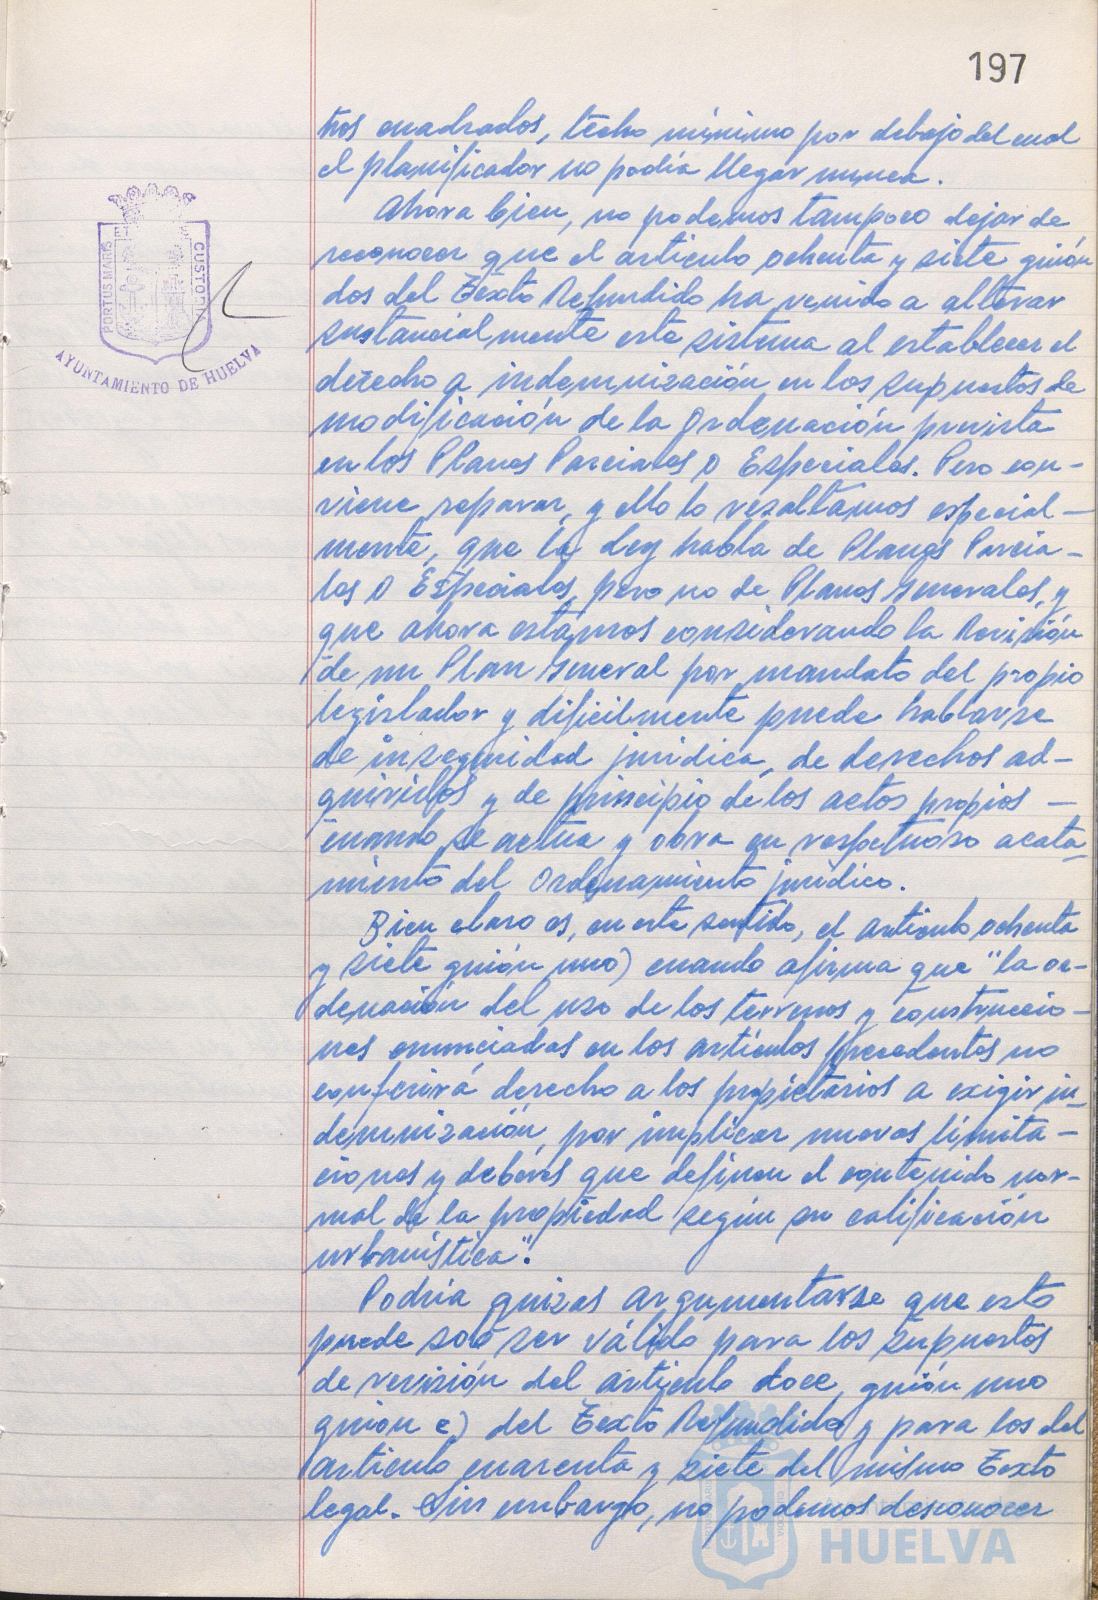 197
tros cuadrados, techo mínimo por debajo del cual
el planificador no podía llegar nunca.
Ahora bien, no podemos tampoco dejar de
reconocer que el artículo ochenta y siete guión
dos del Texto Refundido ha venido a alterar
sustancialmente este sistema al establecer el
derecho a indemnización en los supuestos de
modificación de la Ordenación prevista
en los Planes Parciales o Especiales. Pero con-
viene reparar, y ello lo resaltamos especial-
mente, que la Ley habla de Planes Parcia-
les o Especiales, pero no de Planes Generales, y
que ahora estamos considerando la Revisión
de un Plan General por mandato del propio
legislador y dificilmente puede hablarse
de inseguridad jurídica, de derechos ad-
quiridos y de principio de los actos propios -
cuando se actúa y obra en respetuoso acata-
miento del Ordenamiento jurídico.
Bien claro es, en este sentido, el artículo ochenta
y siete guión uno) cuando afirma que "la or-
denación del uso de los terrenos y construccio-
nes enunciadas en los artículos precedentes no
conferirá derecho a los propietarios a exigir in-
demnización, por implicar nuevas limita-
ciones y deberes que definen el contenido nor-
mal de la propiedad según su calificación
urbanística".
Podría quizás argumentarse que esto
puede solo ser válido para los supuestos
de revisión del artículo doce, guión uno
guión c) del Texto Refundido y para los del
artículo cuarenta y siete del mismo Texto
legal. Sin embargo, no podemos desconocer
PORTUS MARIS
CUSTODIA
AYUNTAMIENTO DE HUELVA
HUELVA